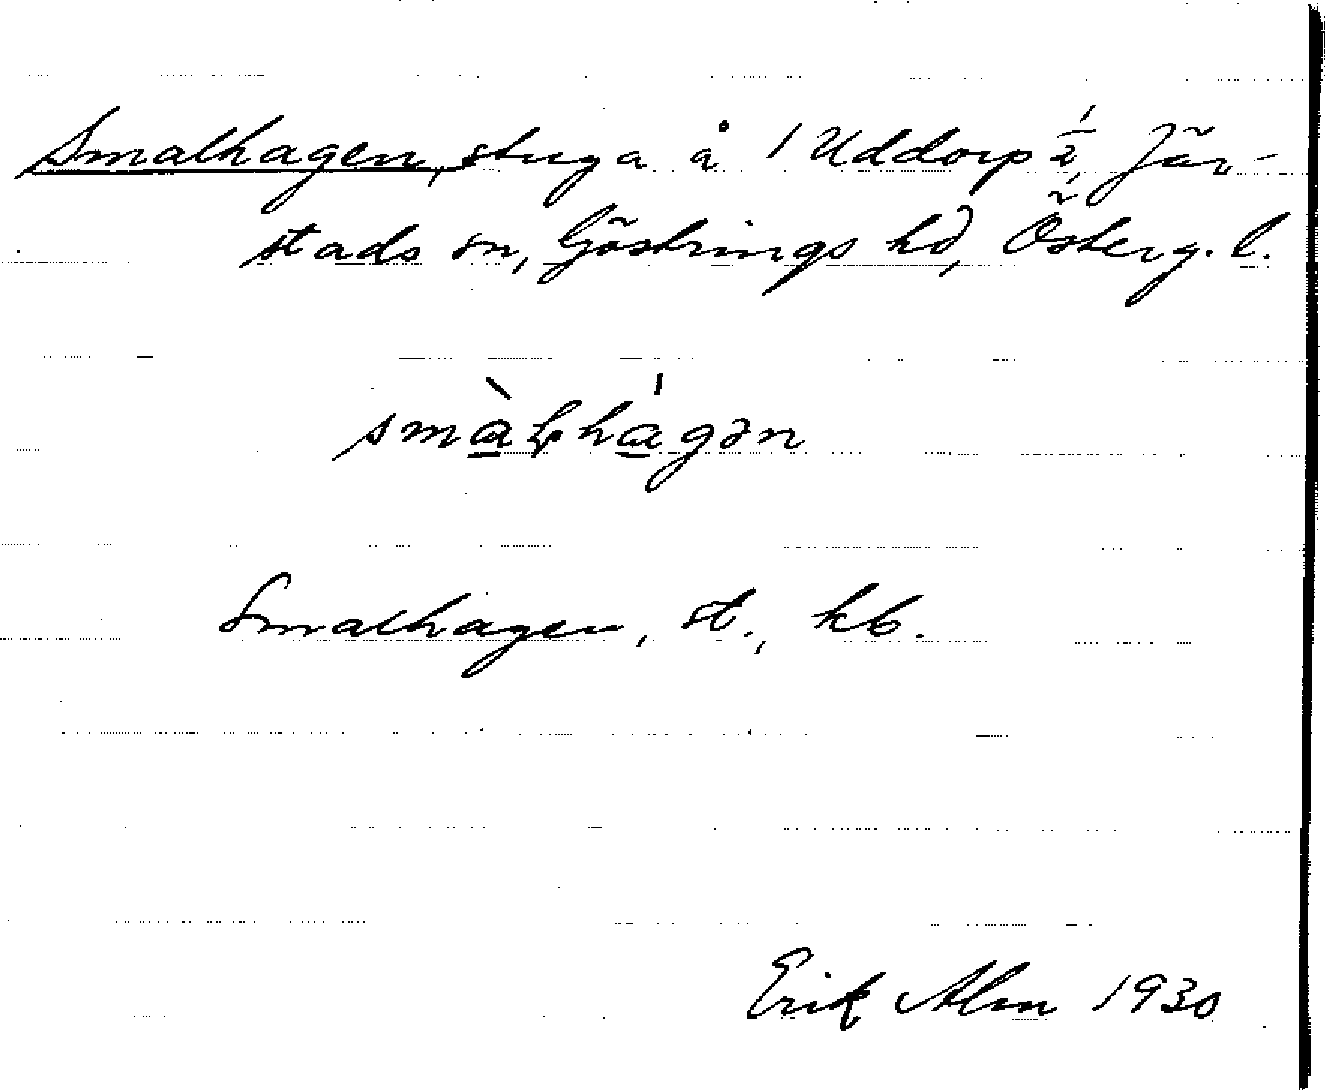 Smalhagen, stuga å 1 Uddorp ½, Jär-
stads sn, Göstrings hd, Österg. l.
smàḷhágən
Smalhagen, st., kb.
Erik Alm 1930